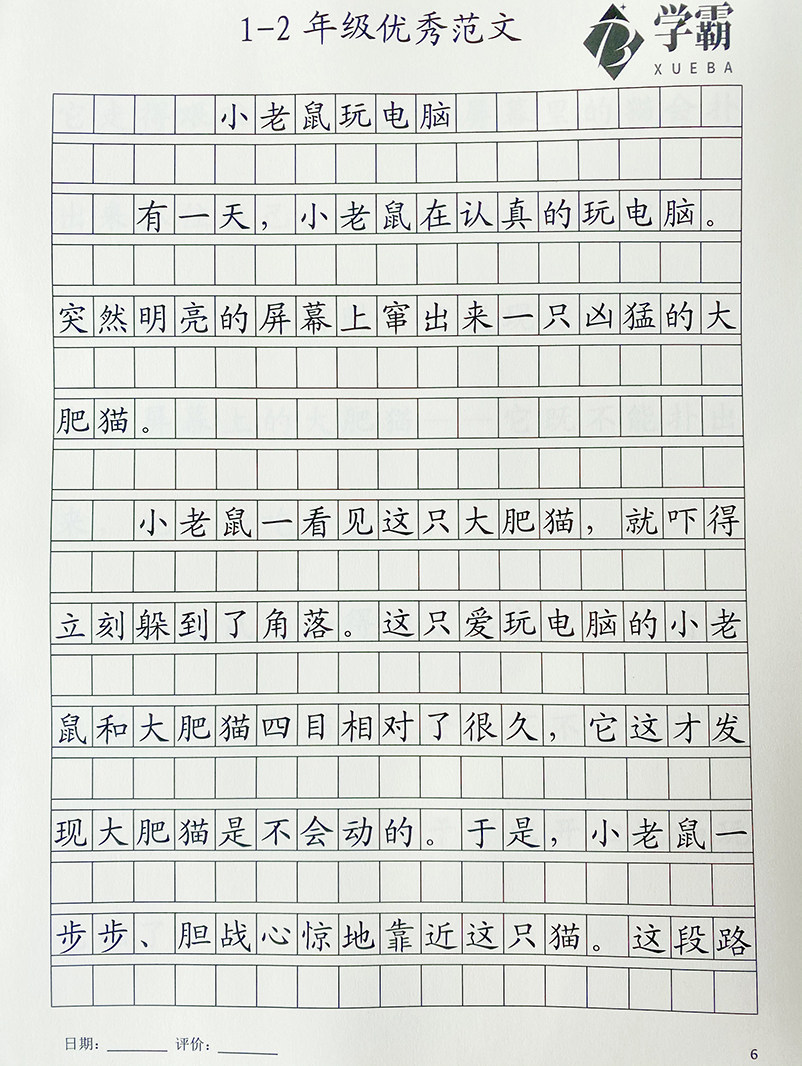 1-2 年级优秀范文
学霸
XUEBA
小老鼠玩电脑
有一天，小老鼠在认真的玩电脑。
突然明亮的屏幕上窜出来一只凶猛的大
肥猫。
小老鼠一看见这只大肥猫，就吓得
立刻躲到了角落。这只爱玩电脑的小老
鼠和大肥猫四目相对了很久，它这才发
现大肥猫是不会动的。于是，小老鼠一
步步、胆战心惊地靠近这只猫。这段路
日期：________ 评价：________
6